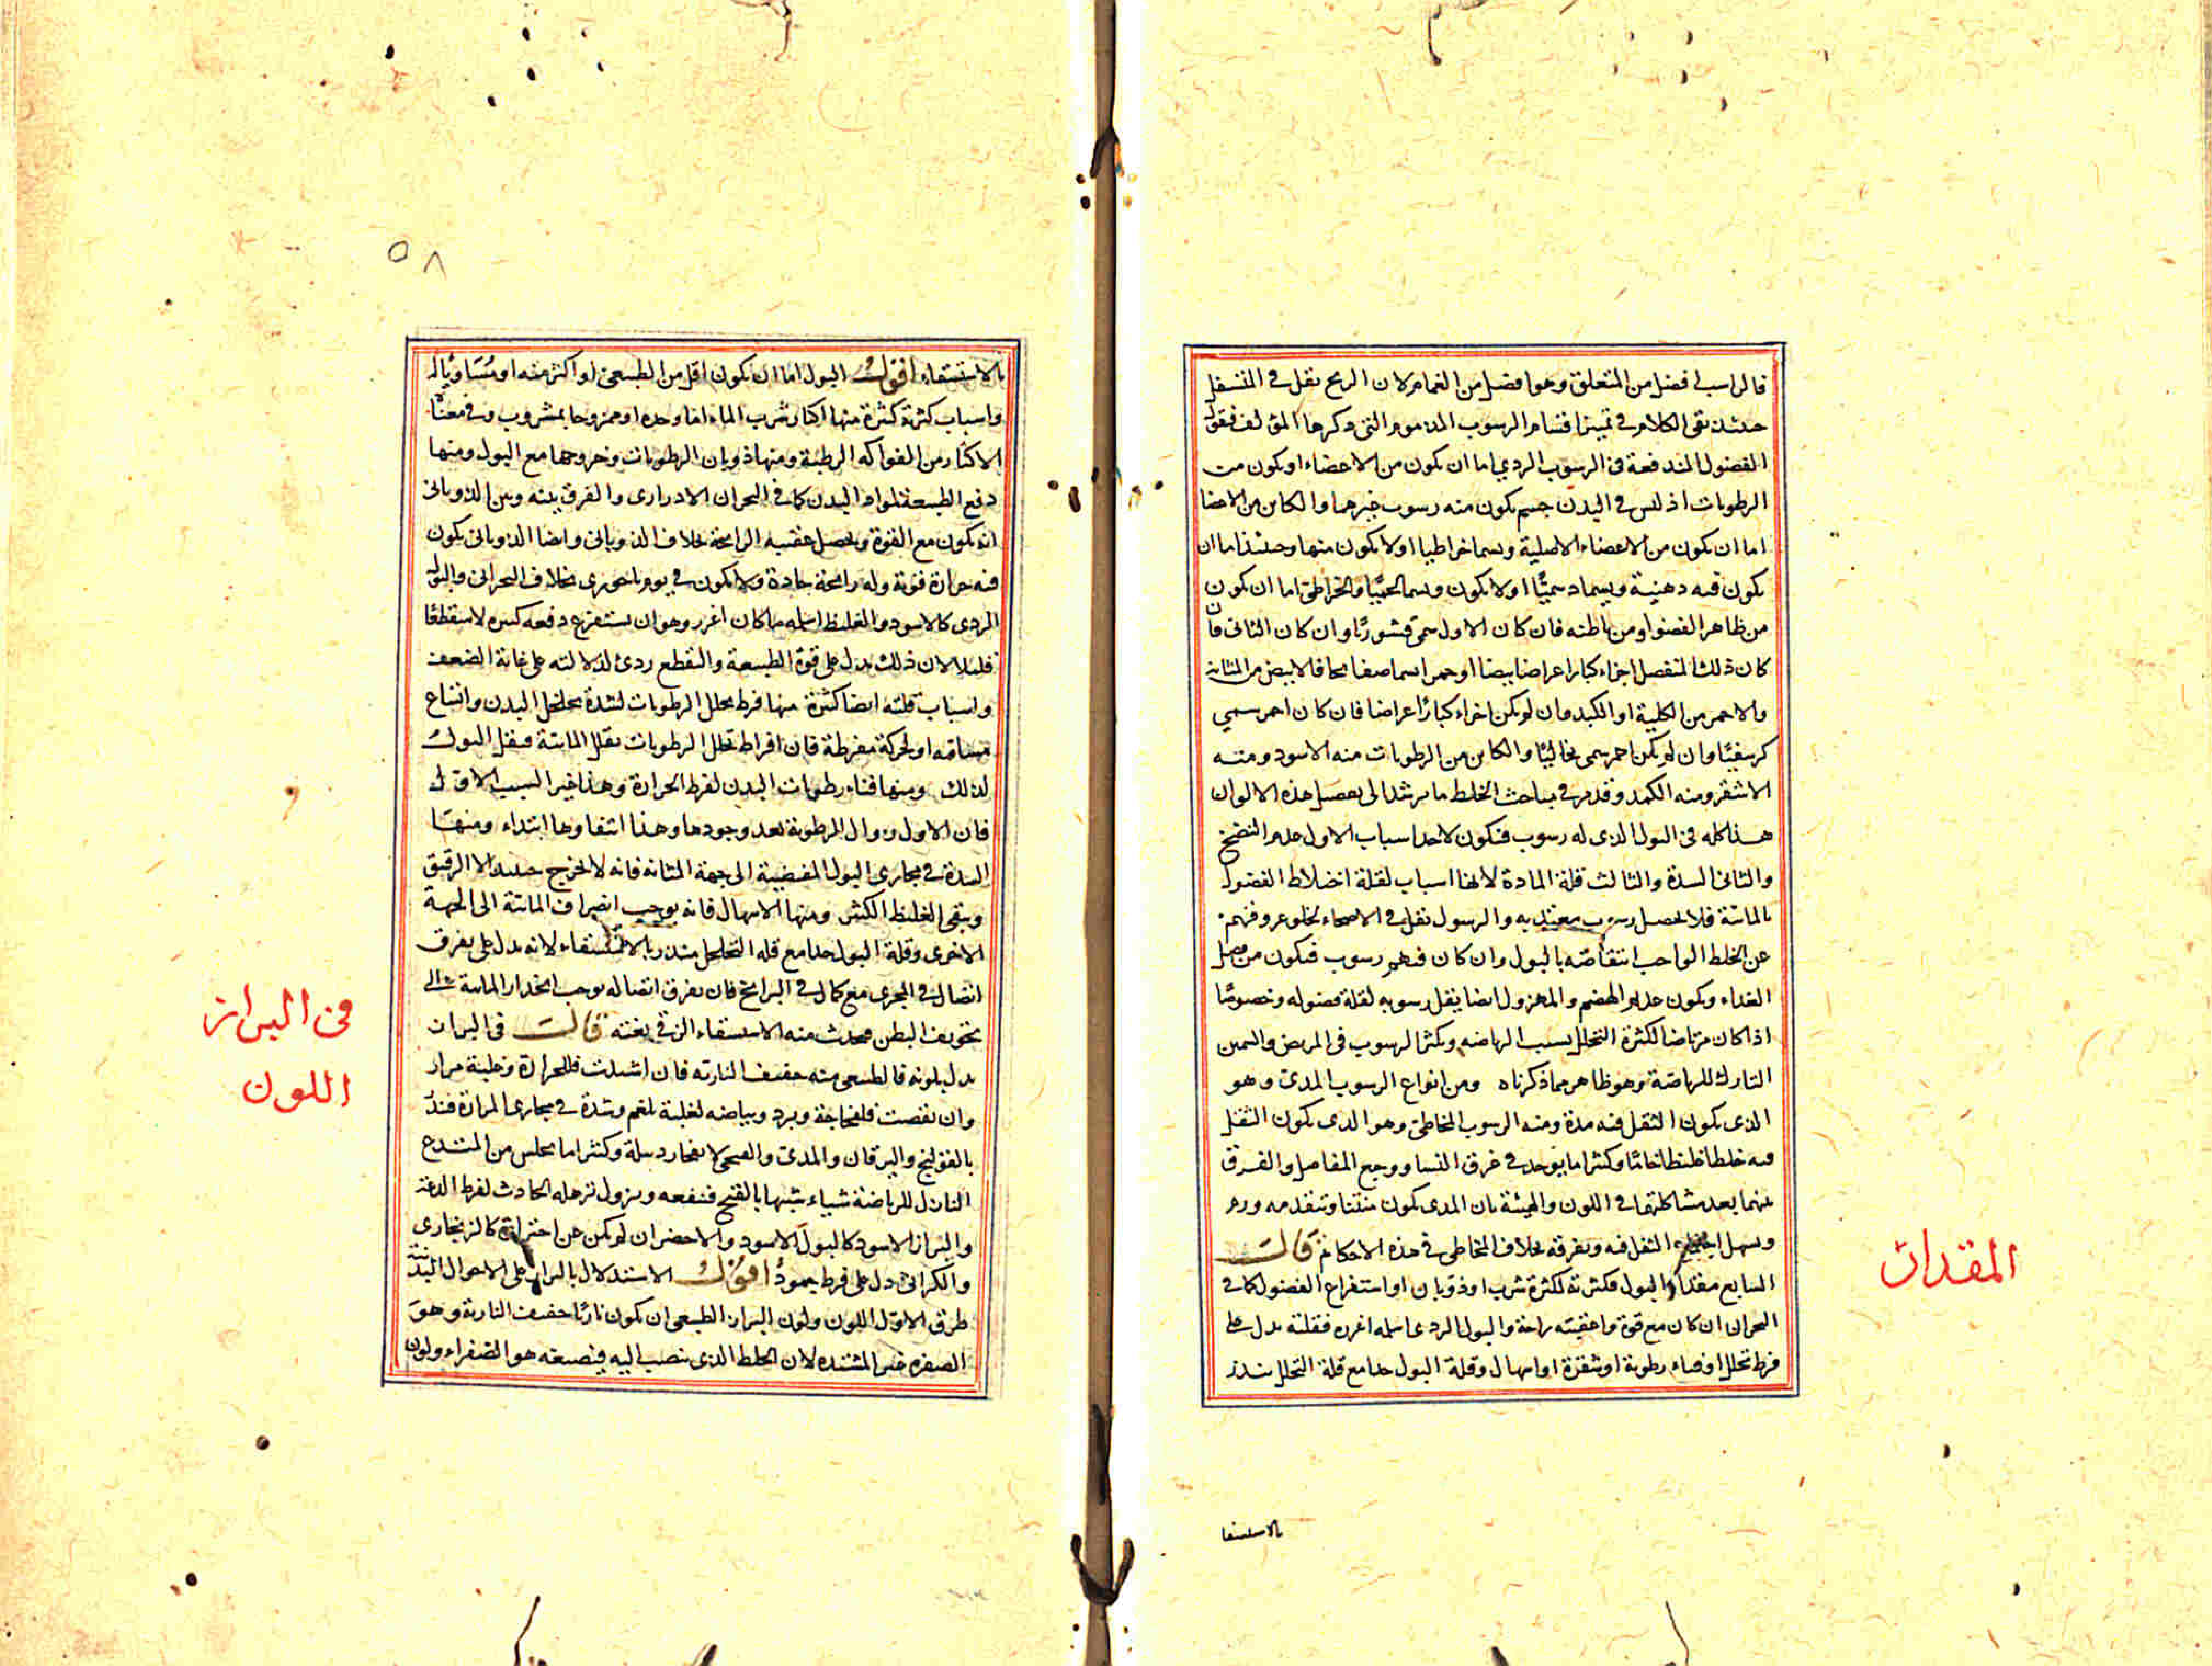 فالراسب افضل من المتعلق وهو افضل من الغمام لان الريح تقل في المتسفل
حينئذ بقى الكلام في تمييز اقسام الرسوب المذموم التى ذكرها المؤلف فنقول
الفضول المندفعة فى الرسوب الردي اما ان تكون من الاعضاء او تكون من
الرطوبات اذ ليس في البدن جسم يكون منه رسوب غيرهما والكاين من الاعضا
اما ان يكون من الاعضاء الاصلية ويسما خراطيا اولا يكون منها وحينئذ اما ان
يكون فيه دهنية ويسما دسميًّا اولا يكون ويسما لحميًّا والخراطى اما ان يكون
من ظاهر العضو او من باطنه فان كان الاول سمى قشوريًّا وان كان الثانى فان
كان ذلك المنفصل اجزاء كبارا عراضا بيضا او حمرا سما صفايحيا فالابيض من المثانة
والاحمر من الكلية او الكبد وان لم يكن اجزاء كبارًا عراضا فان كان احمر سمي
كرسنيًّا وان لم يكن احمر سمى نخاليًّا والكاين من الرطوبات منه الاسود ومنه
الاشقر ومنه الكمد وقد مر في مباحث الخلط ما يرشد الى تفصيل هذه الالوان
هذا كله فى البول الذى له رسوب فيكون لاحد اسباب الاول عدم النضج
والثانى السدة والثالث قلة المادة لانها اسباب لقلة اختلاط الفضول
بالمائية فلا يحصل رسوب معتد به والرسوب يقل في الاصحاء لخلو عروقهم
عن الخلط الواجب انتفاضه بالبول وان كان فيهم رسوب فيكون من فضل
الغذاء ويكون عديم الهضم والمهزول ايضا يقل رسوبه لقلة فضوله وخصوصًا
اذا كان مرتاضا لكثرة التحلل بسبب الرياضه ويكثر الرسوب فى المريض والسمين
التارك للرياضة وهو ظاهر مما ذكرناه ومن انواع الرسوب المدى وهو
الذى يكون الثقل فيه مدة ومنه الرسوب المخاطى وهو الذى يكون الثقل
فيه خلطا غليظا خامًا وكثيرا ما يوجد في عرق النسا ووجع المفاصل والفرق
بينهما بعد مشاكلتهما في اللون والهيئة بان المدى يكون منتنا ويتقدمه ورم
ويسهل اجتماع الثقل فيه وتفرقه بخلاف المخاطى في هذه الاحكام قالت
السابع مقدار البول فكثرته لكثرة شرب او ذوبان او استفراغ الفضول كما في
البحران ان كان مع قوة واعقبته راحة والبول الردى اسلمه اغزره فقلته يدل على
فرط تحلل او فناء رطوبة او شقرة او اسهال وقلة البول جدا مع قلة التحلل ينذر
المقدار
بالاستسقا
٥٨
بالاستسقاء اقول البول اما ان يكون اقل من الطبيعى او اكثر منه او مُسَاويًا له
واسباب كثرته كثيرة منها اكثار شرب الماء اما وحده او ممزوجا بمشروب وفى معناه
الاكثار من الفواكه الرطبة ومنها ذوبان الرطوبات وخروجها مع البول ومنها
دفع الطبيعة لمواد البدن كما في البحران الادرارى والفرق بينه وبين الذوبانى
انه يكون مع القوة ويحصل عقيبه الراحة بخلاف الذوبانى وايضا الذوبانى يكون
فيه حرارة قوية وله رايحة حادة ولا يكون في يوم باحورى بخلاف البحرانى والبول
الردى كالاسود والغليظ اسلمه ما كان اغزر وهو ان يستفرغ دفعه كثيره لا متقطعًا
قليلا لان ذلك يدل على قوة الطبيعة والتقطع ردى لدلالته على غاية الضعف
واسباب قلته ايضا كثيرة منها فرط تحلل الرطوبات لشدة تخلخل البدن واتساع
مسامه او لحركة مفرطة فان افراط تحلل الرطوبات تقلل المائية فيقل البول
لذلك ومنها فناء رطوبات البدن لفرط الحرارة وهذا غير السبب الاول
فان الاول زوال الرطوبة بعد وجودها وهذا انتفاوها ابتداء ومنها
السدة في مجارى البول المفضية الى جهة المثانه فانه لا يخرج حينئذ الا الرقيق
ويبقى الغليظ الكثير ومنها الاسهال فانه يوجب انصراف المائية الى الجهة
الاخرى وقلة البول جدا مع قلة التحلحل ينذر بالاستسقاء لانه يدل على تفرق
اتصال في المجرى مع كمال في البرايخ فان تفرق اتصاله يوجب انحدار المائية الى
تجويف البطن فيحدث منه الاستسقاء الزقى بغتة قالت فى البراز
يدل بلونه فالطبيعى منه خفيف النارية فان اشتدت فللحرارة وغلبة مرار
وان نقصت فلفجاجة وبرد وبياضه لغلبة بلغم وشدة في مجارى المرارة فينذر
بالقولنج واليرقان والمدى والقيحى لانفجار دبيلة وكثيرا ما يجلس من المتدع
التارك للرياضة شياء شبيها بالقيح فينفعه ويزول ترهله الحادث لفرط الدعة
والبراز الاسود كالبول الاسود والاخضر ان لم يكن عن احتراق كالزنجارى
والكراثى دل على فرط جمودٍ اقول الاستدلال بالبراز على الاحوال البدنية
طرق الاول اللون ولون البراز الطبيعى ان يكون ناريًا خفيف النارية وهو
الصفرة غير المشتدة لان الخلط الذى ينصب اليه فيصبغه هو الصفراء ولون
فى البراز
اللون